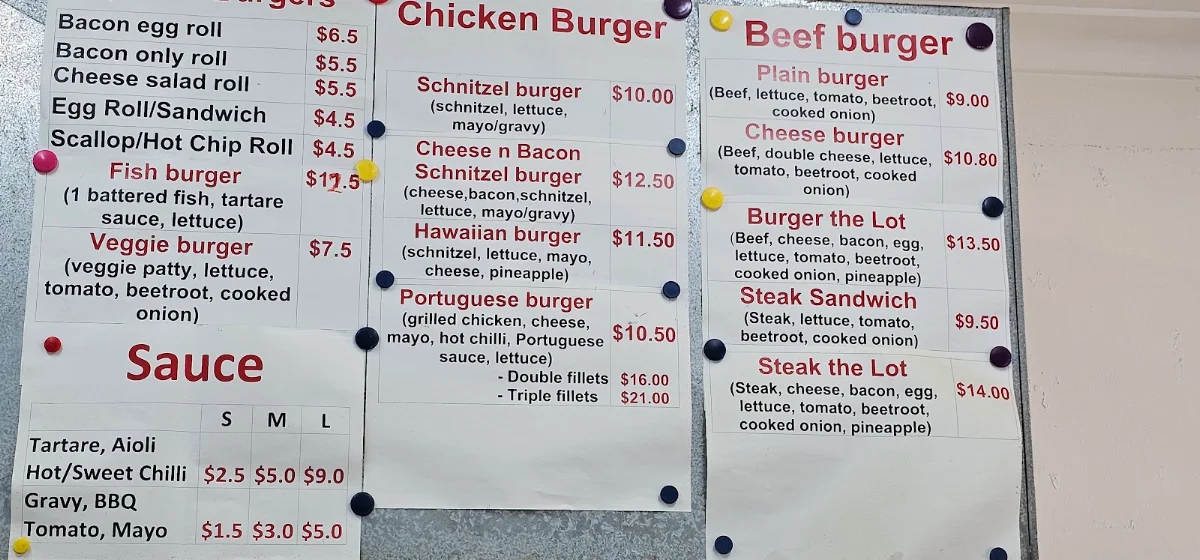 Burgers
Bacon egg roll $6.5
Bacon only roll $5.5
Cheese salad roll $5.5
Egg Roll/Sandwich $4.5
Scallop/Hot Chip Roll $4.5
Fish burger
(1 battered fish, tartare
sauce, lettuce)
Veggie burger $7.5
(veggie patty, lettuce,
tomato, beetroot, cooked
onion)
Sauce
S M L
Tartare, Aioli
Hot/Sweet Chilli $2.5 $5.0 $9.0
Gravy, BBQ
Tomato, Mayo $1.5 $3.0 $5.0
Chicken Burger
Schnitzel burger $10.00
(schnitzel, lettuce,
mayo/gravy)
Cheese n Bacon
Schnitzel burger $12.50
(cheese,bacon,schnitzel,
lettuce, mayo/gravy)
Hawaiian burger $11.50
(schnitzel, lettuce, mayo,
cheese, pineapple)
Portuguese burger
(grilled chicken, cheese,
mayo, hot chilli, Portuguese $10.50
sauce, lettuce)
- Double fillets $16.00
- Triple fillets $21.00
Beef burger
Plain burger
(Beef, lettuce, tomato, beetroot, $9.00
cooked onion)
Cheese burger
(Beef, double cheese, lettuce, $10.80
tomato, beetroot, cooked
onion)
Burger the Lot
(Beef, cheese, bacon, egg, $13.50
lettuce, tomato, beetroot,
cooked onion, pineapple)
Steak Sandwich
(Steak, lettuce, tomato, $9.50
beetroot, cooked onion)
Steak the Lot
(Steak, cheese, bacon, egg, $14.00
lettuce, tomato, beetroot,
cooked onion, pineapple)